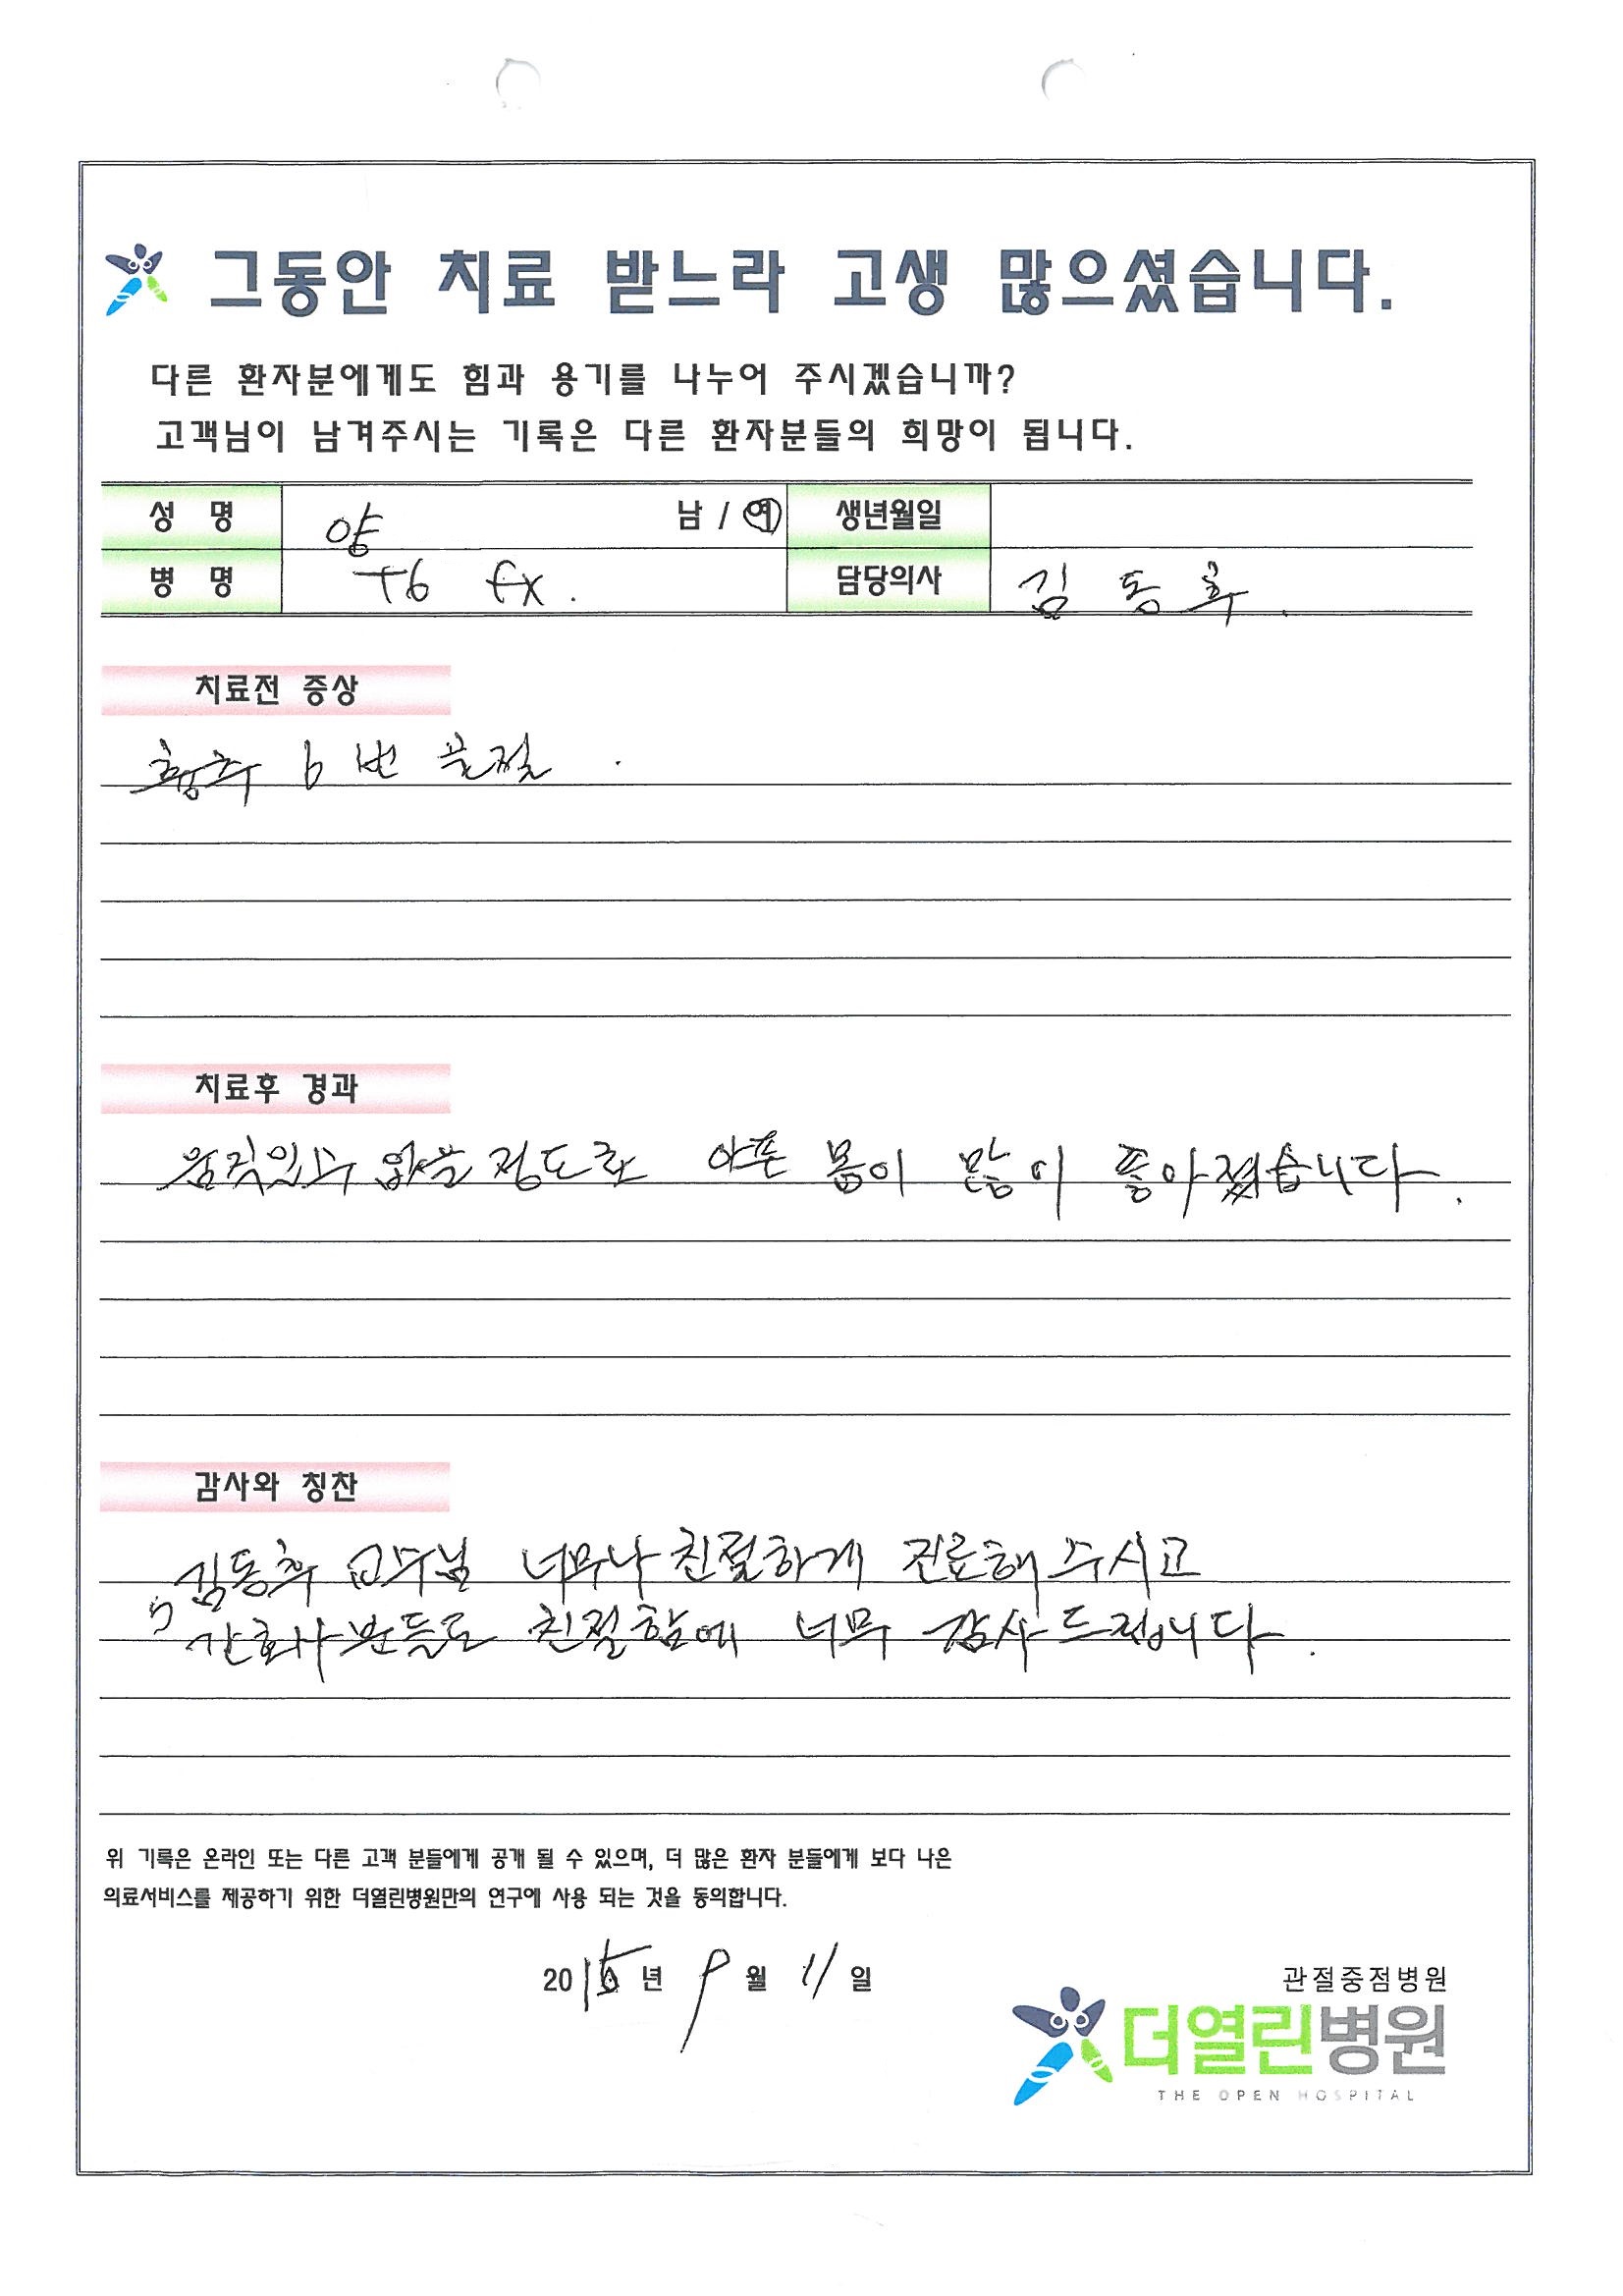 그동안 치료 받느라 고생 많으셨습니다.
다른 환자분에게도 힘과 용기를 나누어 주시겠습니까?
고객님이 남겨주시는 기록은 다른 환자분들의 희망이 됩니다.
성 명 양 남 / 여 생년월일
병 명 T6 fx. 담당의사 김동휘.
치료전 증상
흉추 6번 골절.
치료후 경과
움직일수 없을 정도로 아픈 몸이 많이 좋아졌습니다.
감사와 칭찬
김동휘 교수님 너무나 친절하게 진료해 주시고
간호사분들도 친절함에 너무 감사드립니다.
위 기록은 온라인 또는 다른 고객 분들에게 공개 될 수 있으며, 더 많은 환자 분들에게 보다 나은
의료서비스를 제공하기 위한 더열린병원만의 연구에 사용 되는 것을 동의합니다.
2015년 9월 11일
관절중점병원
더열린병원
THE OPEN HOSPITAL